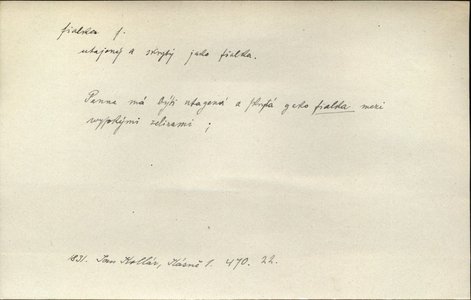 fialka f.
utajený a skrytý jako fialka.
Panna má býti utagená a skrytá gako fialka mezi
wysokými zelinami ;
1831. Jan Kollár, Kázně I. 470. 22.